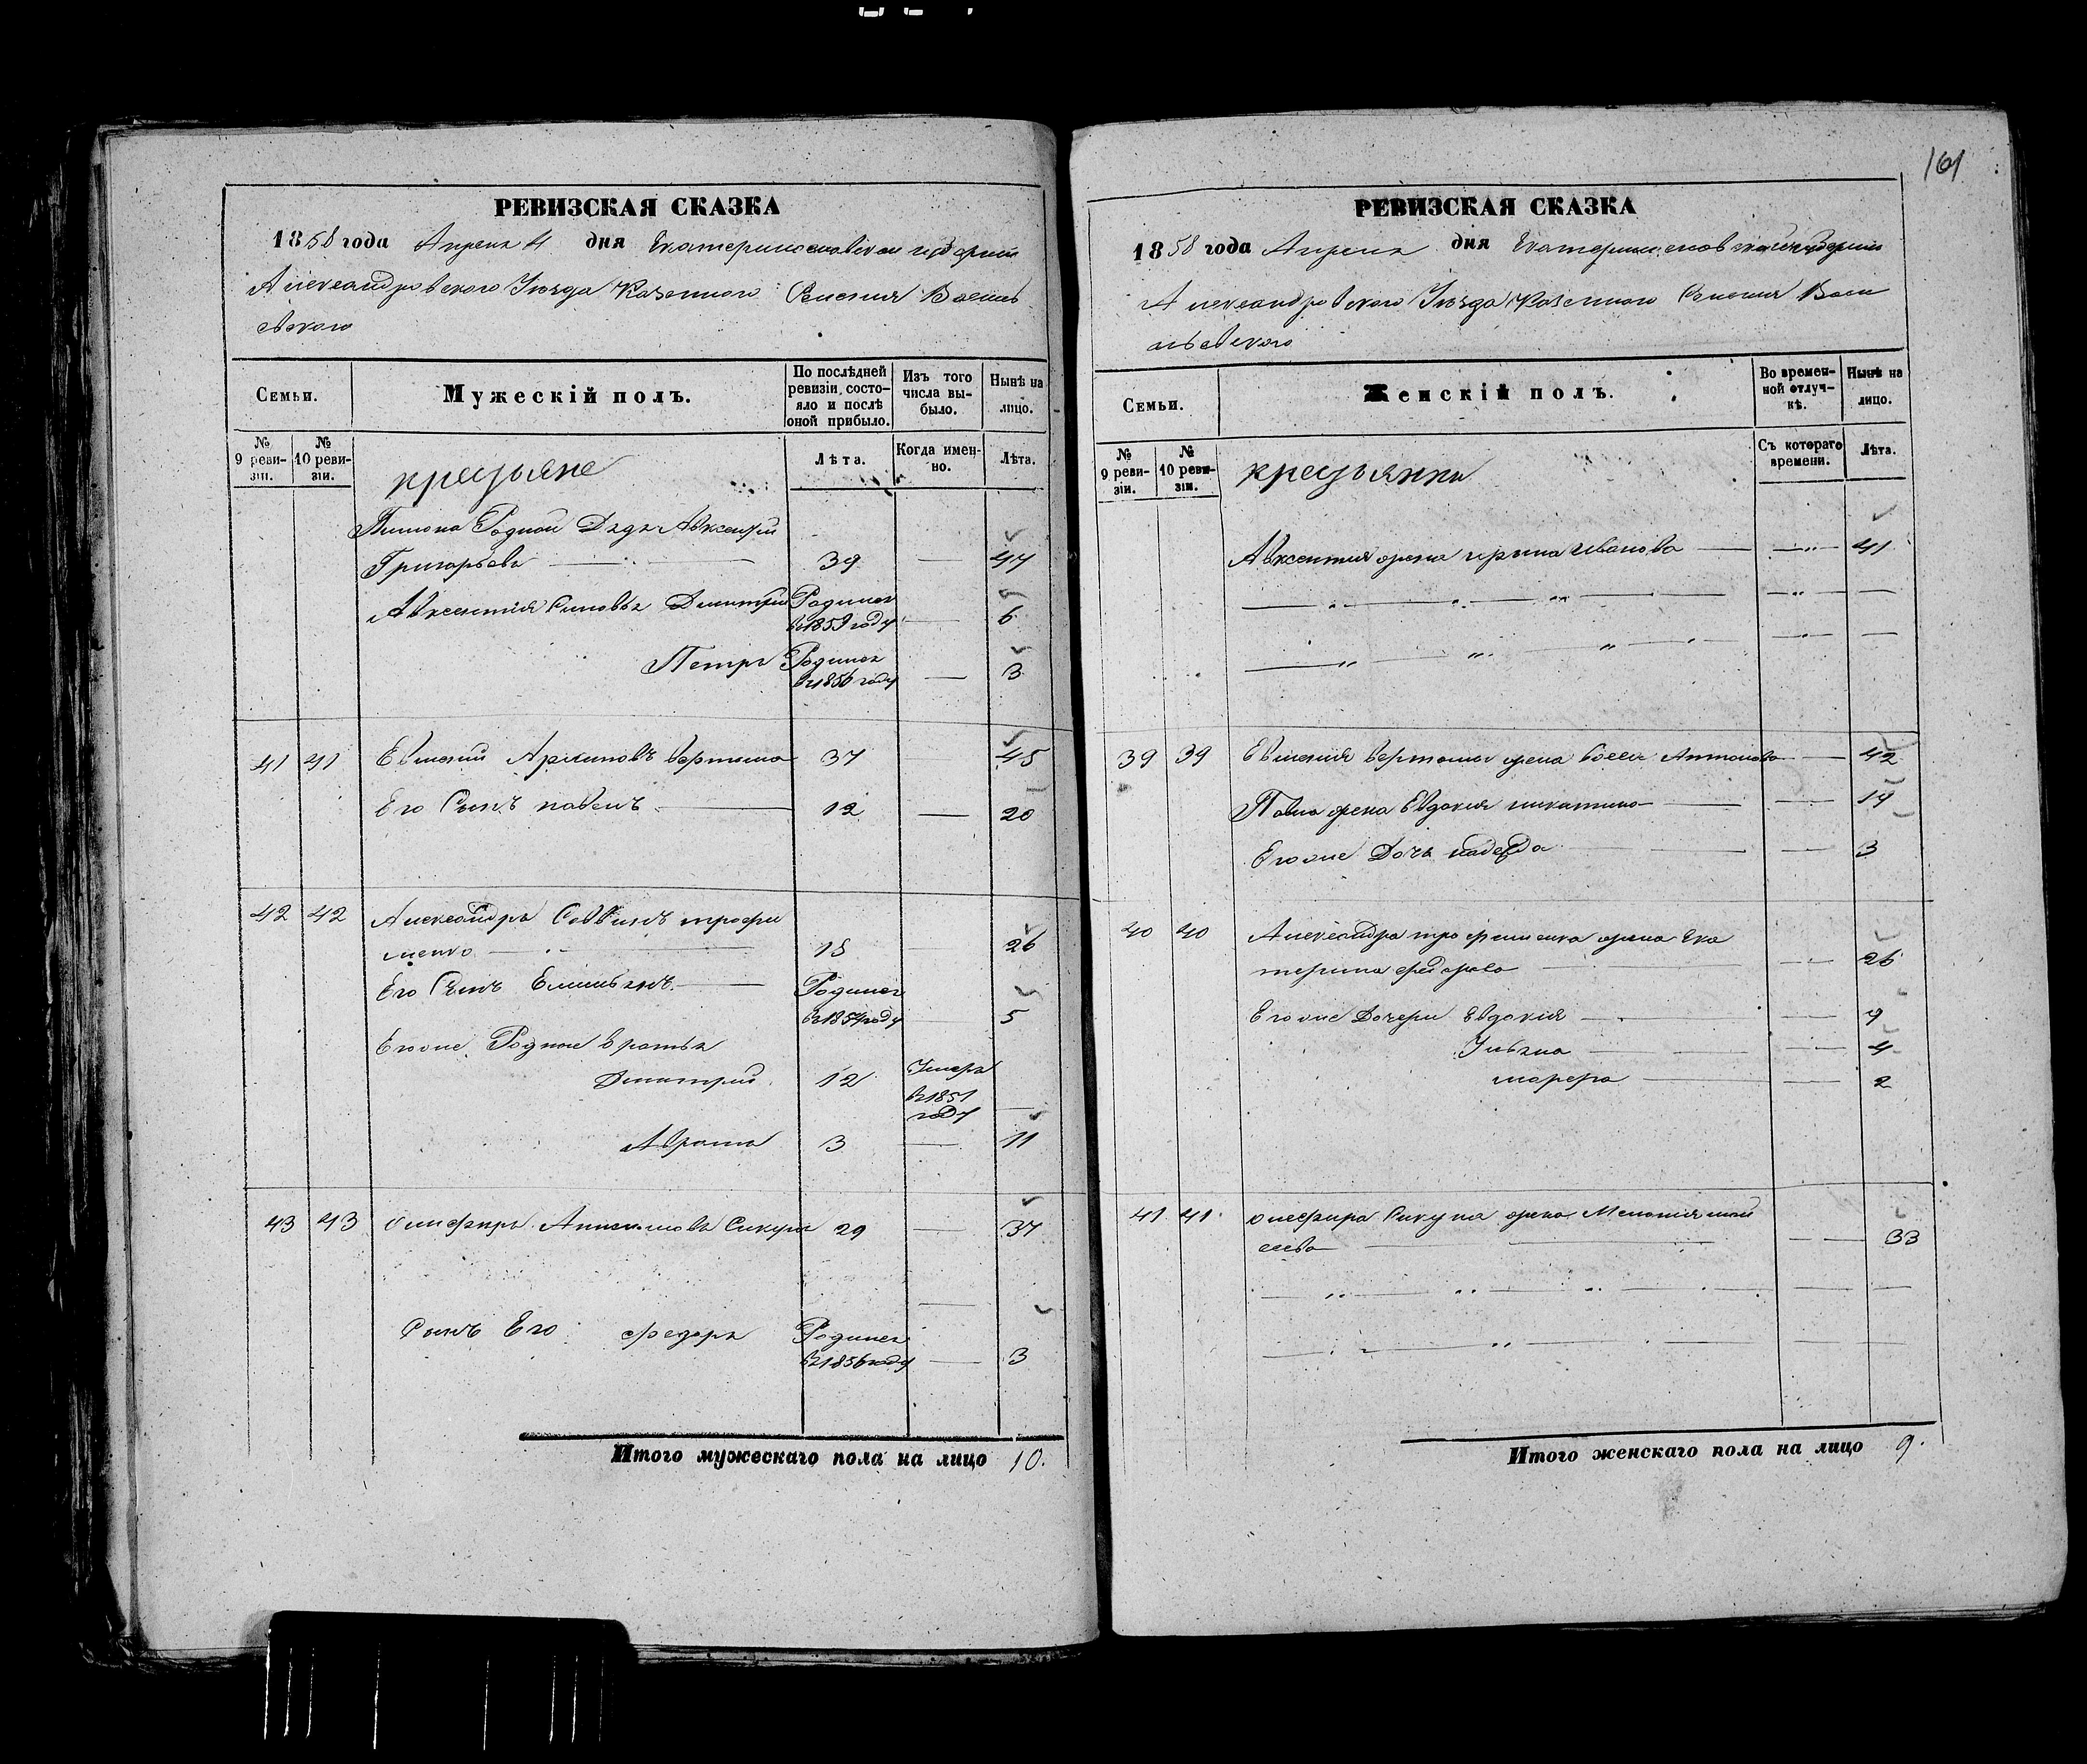 161
РЕВИЗСКАЯ СКАЗКА
1858 года Апреля 4 дня Екатеринославской губернии
Александровского Уезда Казенного Селения Василь
евского
Семьи.
Мужескій полъ.
По послѣдней ревизіи состо-
яло и послѣ оной прибыло.
Изъ того числа вы-
было.
Нынѣ на лицо.
№ 9 реви-
зіи.
№ 10 реви-
зіи.
крестьяне
Лѣта.
Когда имен-
но.
Лѣта.
Родной Дядя Авксентий
Григорьевъ 39 47
Авксентия Сыновья Дмитрий Родился
6
Петръ Родился
въ 1856 году 3
41 41 Евгений Архиповъ 37 45
Его Сынъ павелъ 12 20
42 42 Александръ Саввинъ трофи
менко 18 26
Его Сынъ Емельянъ Родился
въ 1854 году 5
Егоже Родные братья
Дмитрий 12 Умеръ
въ 1851
году
Аврамъ 3 11
43 43 Анисимовъ Сикура 29 37
Сынъ Его федоръ Родился
въ 1856 году 3
Итого мужескаго пола на лицо 10.
РЕВИЗСКАЯ СКАЗКА
1858 года Апреля дня Екатеринославской губернии
Александровского Уезда Казенного Селения Васи
льевского
Семьи.
Женскій полъ.
Во времен-
ной отлуч-
кѣ.
Нынѣ на лицо.
№ 9 реви-
зіи.
№ 10 реви-
зіи.
крестьянки
Съ котораго времени.
Лѣта.
Авксентия жена ирына иванова 41
39 39 Евгения жена Антонова 42
Павла жена Евдокия 19
Егоже Дочь надежда 3
40 40 Александра трофименка жена Ека
терина федорова 26
Егоже Дочери Евдокия 9
Ульяна 4
марфа 2
41 41 жена Мелания мои
сеева 33
Итого женскаго пола на лицо 9.